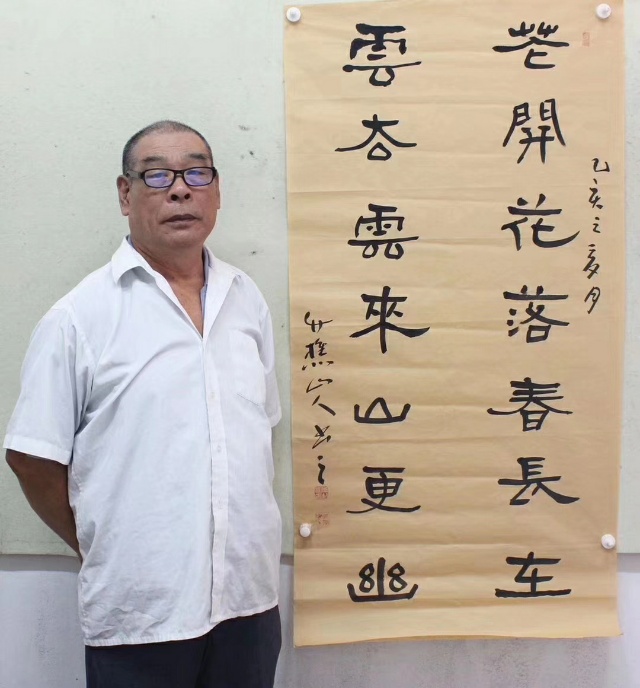 乙亥之夏月
花開花落春長在
雲去雲來山更幽
竹樵山人書之